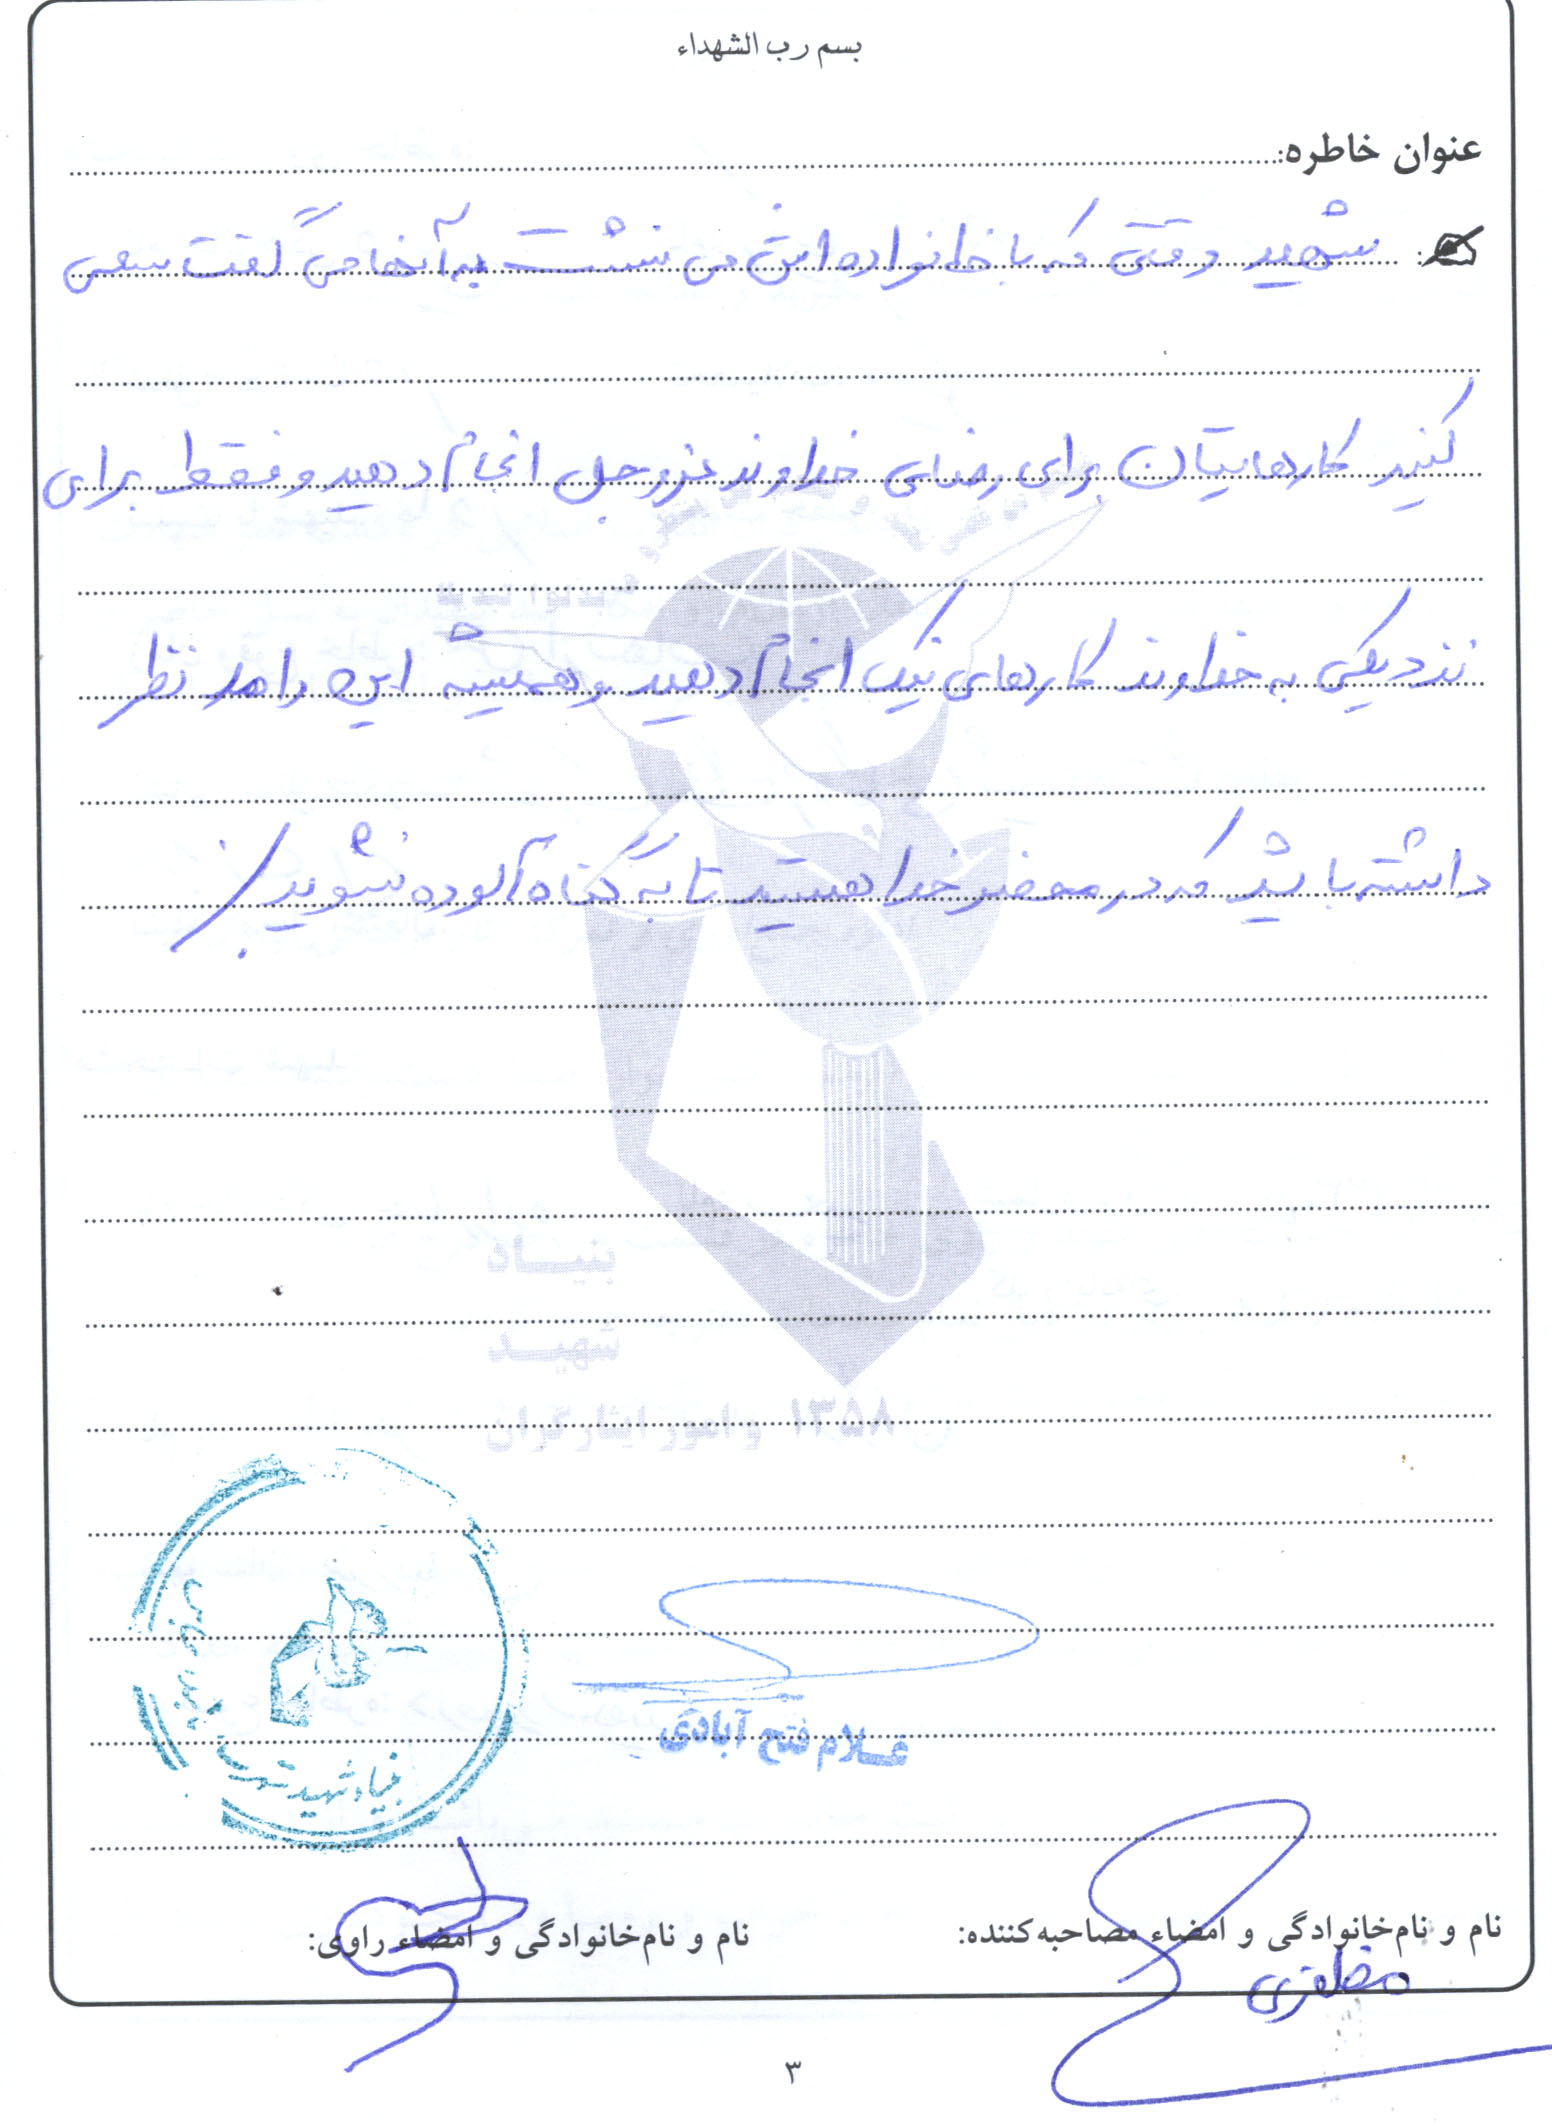 بسم رب الشهداء
عنوان خاطره:
شهید وقتی که با خانواده اش می نشست به آنها می گفت سعی
کنید کارهایتان برای رضای خداوند عزوجل انجام دهید و فقط برای
نزدیکی به خداوند کارهای نیک انجام دهید و همیشه این را مد نظر
داشته باشید که در محضر خدا هستید تا به گناه آلوده نشوید
بنیاد
شهید
و امور ایثارگران ۱۳۵۸
غلام فتح آبادی
بنیاد شهید
نام و نام‌خانوادگی و امضاء مصاحبه‌کننده: نام و نام‌خانوادگی و امضاء راوی:
مظفری
۳